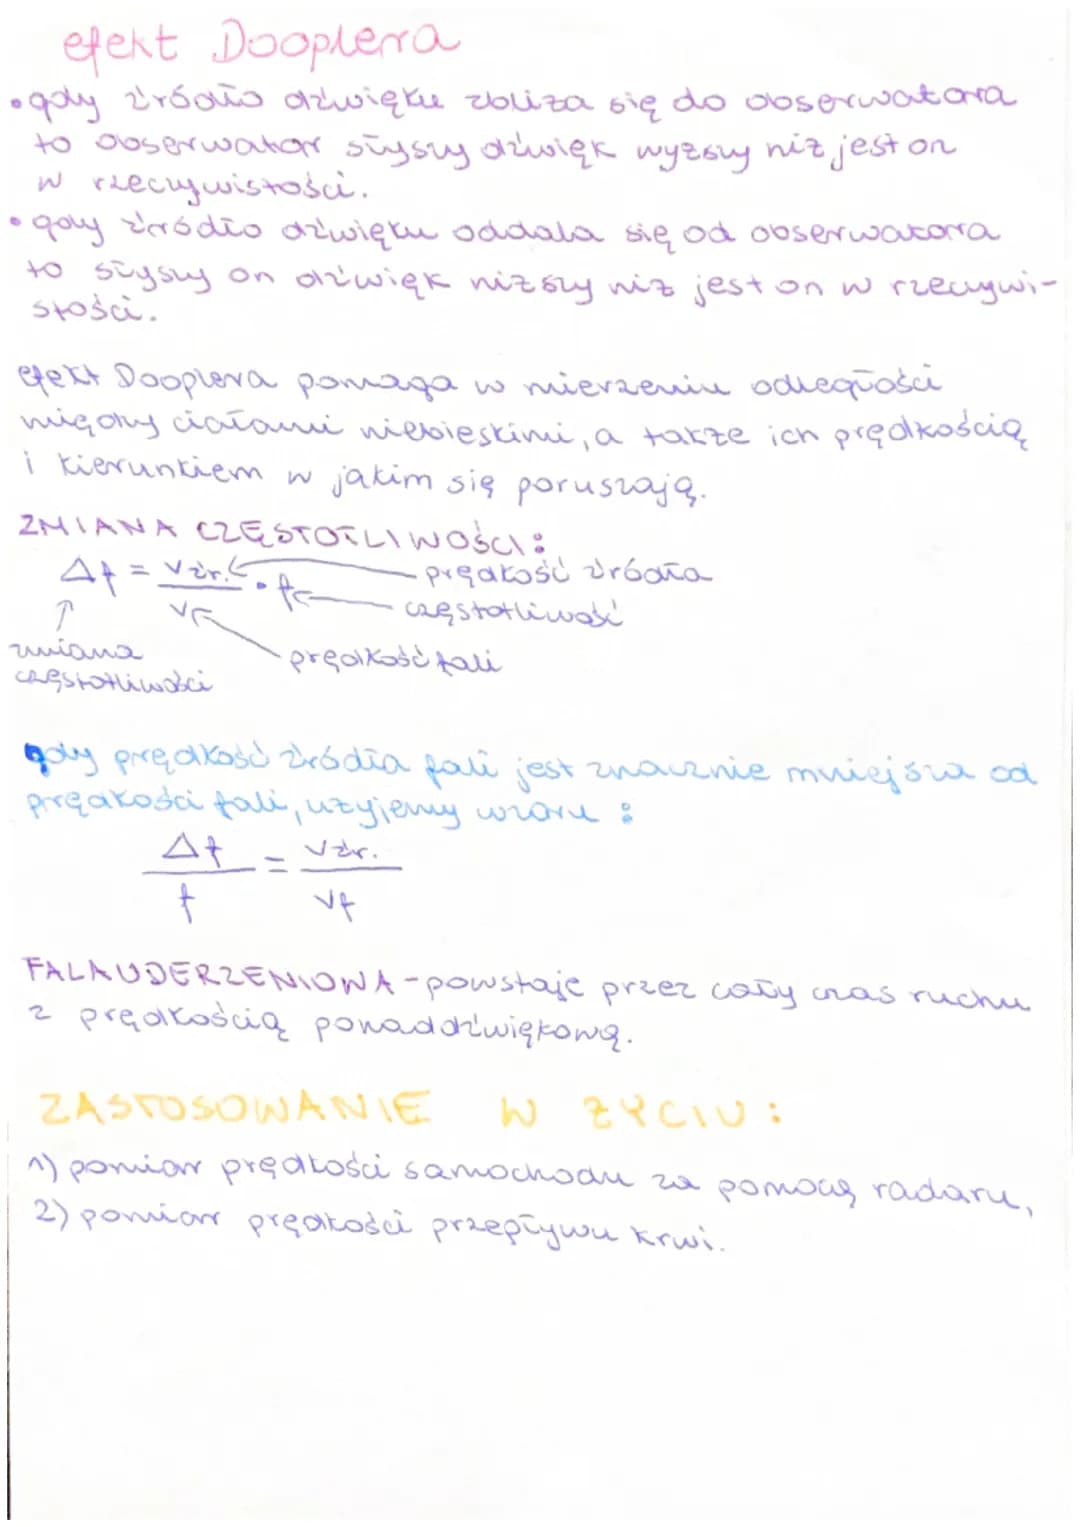 efekt Dooplera
• gdy źródło dźwięku zbliża się do obserwatora
to obserwator słyszy dźwięk wyższy niż jest on
w rzeczywistości.
• gdy źródło dźwięku oddala się od obserwatora
to słyszy on dźwięk niższy niż jest on w rzeczywi-
stości.
efekt Dooplera pomaga w mierzeniu odległości
między ciałami niebieskimi, a także ich prędkością
i kierunkiem w jakim się poruszają.
ZMIANA CZĘSTOTLIWOŚCI:
Δf = vźr. / vf · f
prędkość źródła
częstotliwość
prędkość fali
zmiana
częstotliwości
gdy prędkość źródła fali jest znacznie mniejsza od
prędkości fali, użyjemy wzoru :
Δf / f = vźr. / vf
FALA UDERZENIOWA - powstaje przez cały czas ruchu
z prędkością ponaddźwiękową.
ZASTOSOWANIE W ŻYCIU :
1) pomiar prędkości samochodu za pomocą radaru,
2) pomiar prędkości przepływu krwi.